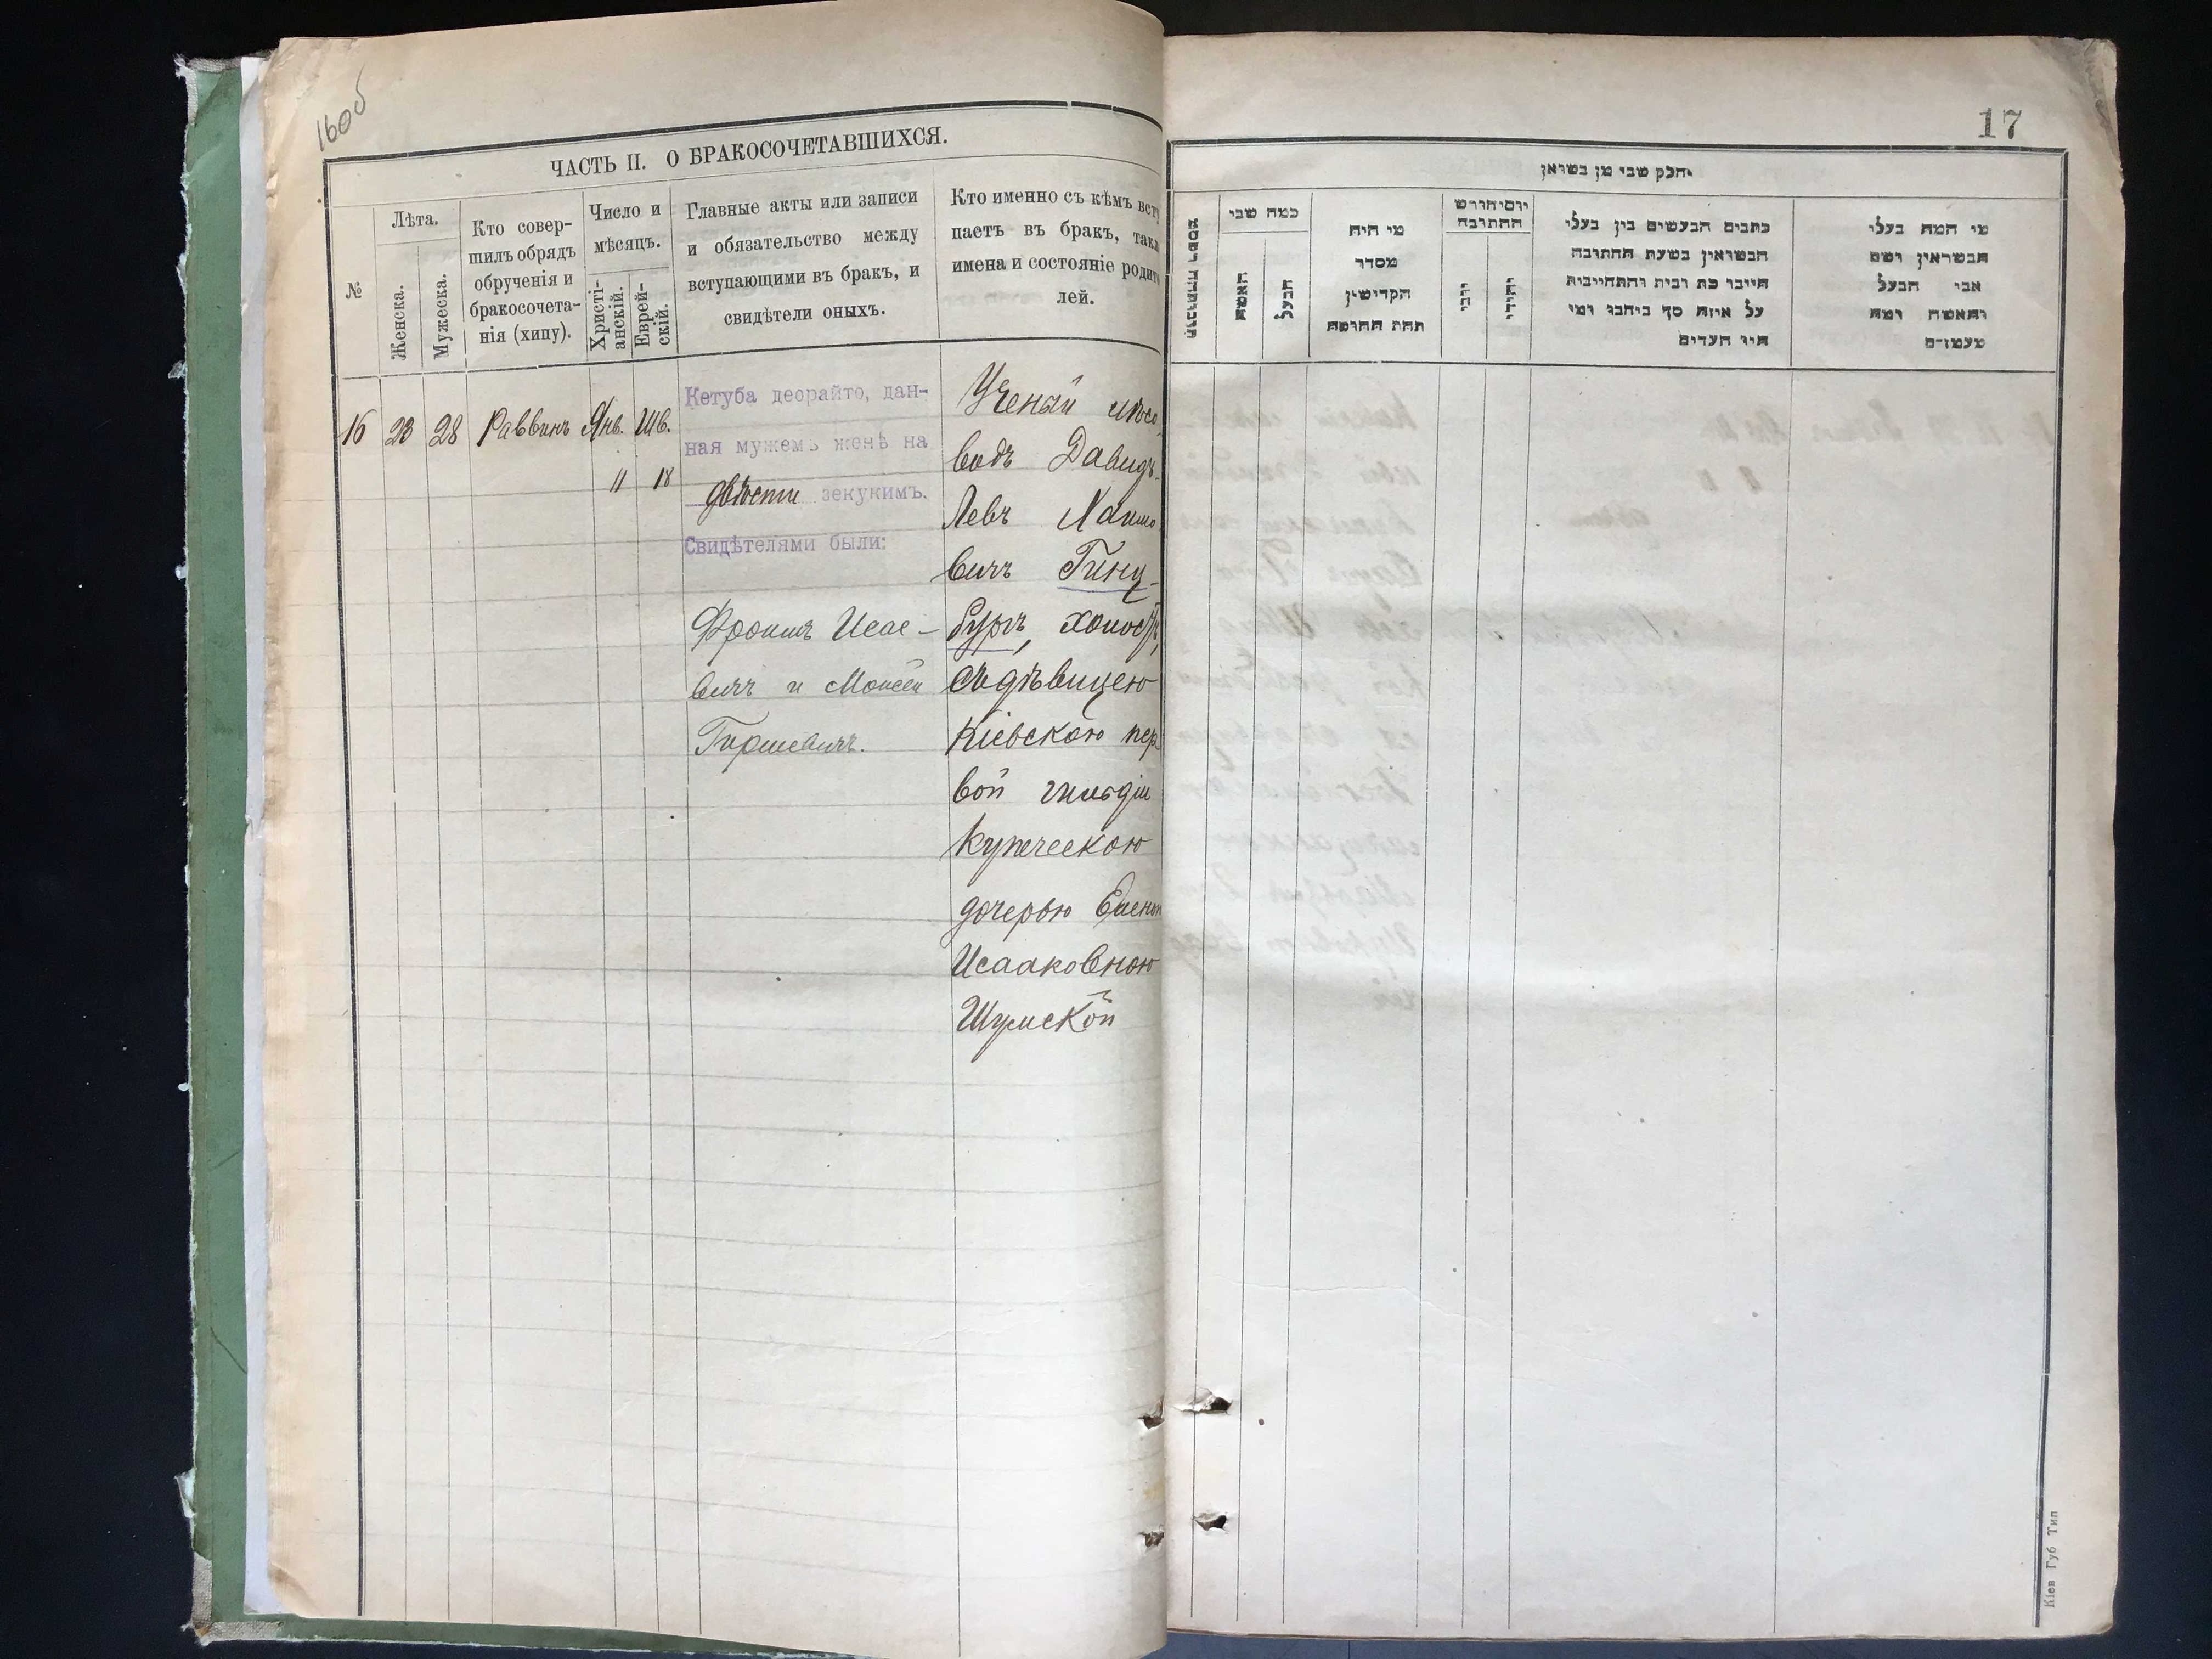 160б
ЧАСТЬ II. О БРАКОСОЧЕТАВШИХСЯ.
№
Лѣта.
Женска.
Мужеска.
Кто совер-
шилъ обрядъ
обрученія и
бракосочета-
нія (хипу).
Число и
мѣсяцъ.
Христі-
анскій.
Еврей-
скій.
Главные акты или записи
и обязательство между
вступающими въ бракъ, и
свидѣтели оныхъ.
Кто именно съ кѣмъ всту
паетъ въ бракъ, так
имена и состояніе родит
лей.
16 23 28 Раввинъ Янв. Шв.
11 18
Кетуба деорайто, дан-
ная мужемъ женѣ на
двѣсти зекукимъ.
Свидѣтелями были:
Фроимъ Исае-
вичъ и Моисей
Гершевичъ.
Ученый лѣсо
водъ Давидъ-
Левъ Хаимо
вичъ Гинц-
бургъ, холостъ,
съ дѣвицею
Кіевскою пер
вой гильдіи
купеческою
дочерью Еленою
Исааковною
Шумской
17
חלק שני מן נשואין
האשה
הבעל
כמה שני
מי היה
מסדר
הקדושין
תחת החופה
יום וחודש
החתונה
נוצרי
יהודי
כתבים הנעשים בין בעלי
הנשואין בשעת החתונה
היינו כת ובית והתחייבות
על איזה סך ביניהם ומי
היו העדים
מי המה בעלי
הנשואין ושם
אבי הבעל
והאשה ומה
מעמדם
Кіев Губ Тип